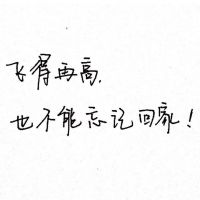 飞得再高,
也不能忘记回家!